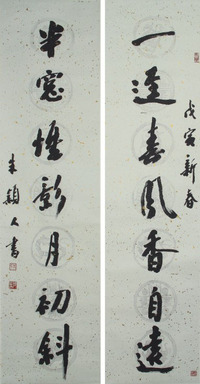 一逕春風香自遠
戊寅新春
半窻梅影月初斜
朱穎人書